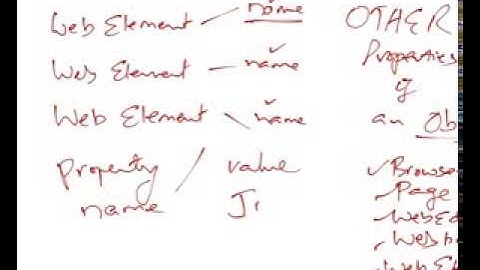 Web Element - name
Web Element - name
Web Element \ name
Property / value
name
OTHER
Properties
of
an Ob
Browse
Page
WebEd
Webb
Web El